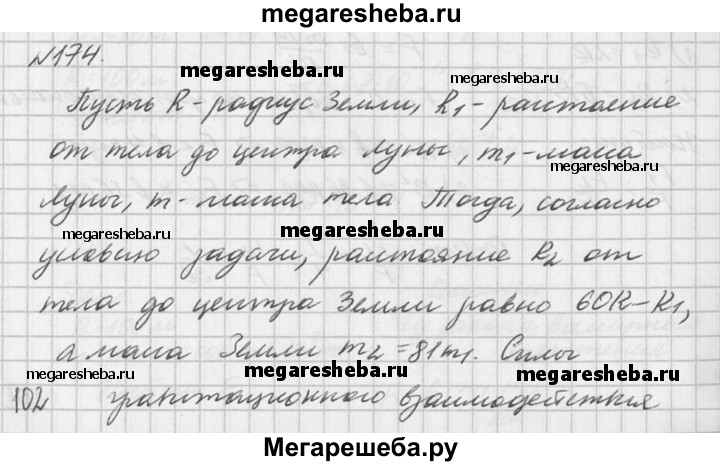 megaresheba.ru
№174.
megaresheba.ru
megaresheba.ru
Пусть R - радиус Земли, R₁ - расстояние
от тела до центра Луны, m₁ - масса
megaresheba.ru
Луны, m - масса тела. Тогда, согласно
megaresheba.ru
megaresheba.ru
условию задачи, расстояние R₂ от
тела до центра Земли равно 60R-R₁,
а масса Земли m₂=81m₁. Силы
megaresheba.ru
megaresheba.ru
megaresheba.ru
102 гравитационного взаимодействия
Мегарешеба.ру